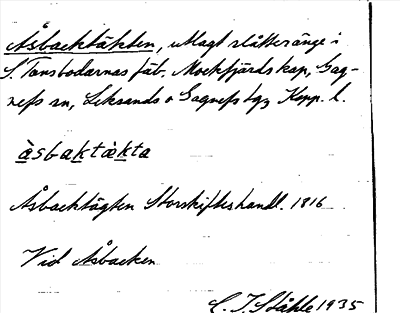 Åsbacktäkten, utlagt slåtteränge i
S. Tansbodarnas fäb. Mockfjärds kap, Gag-
nefs sn, Leksands o Gagnefs tg, Kopp. l.
àsbaktàkta
Åsbacktägten Storskifteshandl. 1816
Vid Åsbacken
C. I. Ståhle 1935